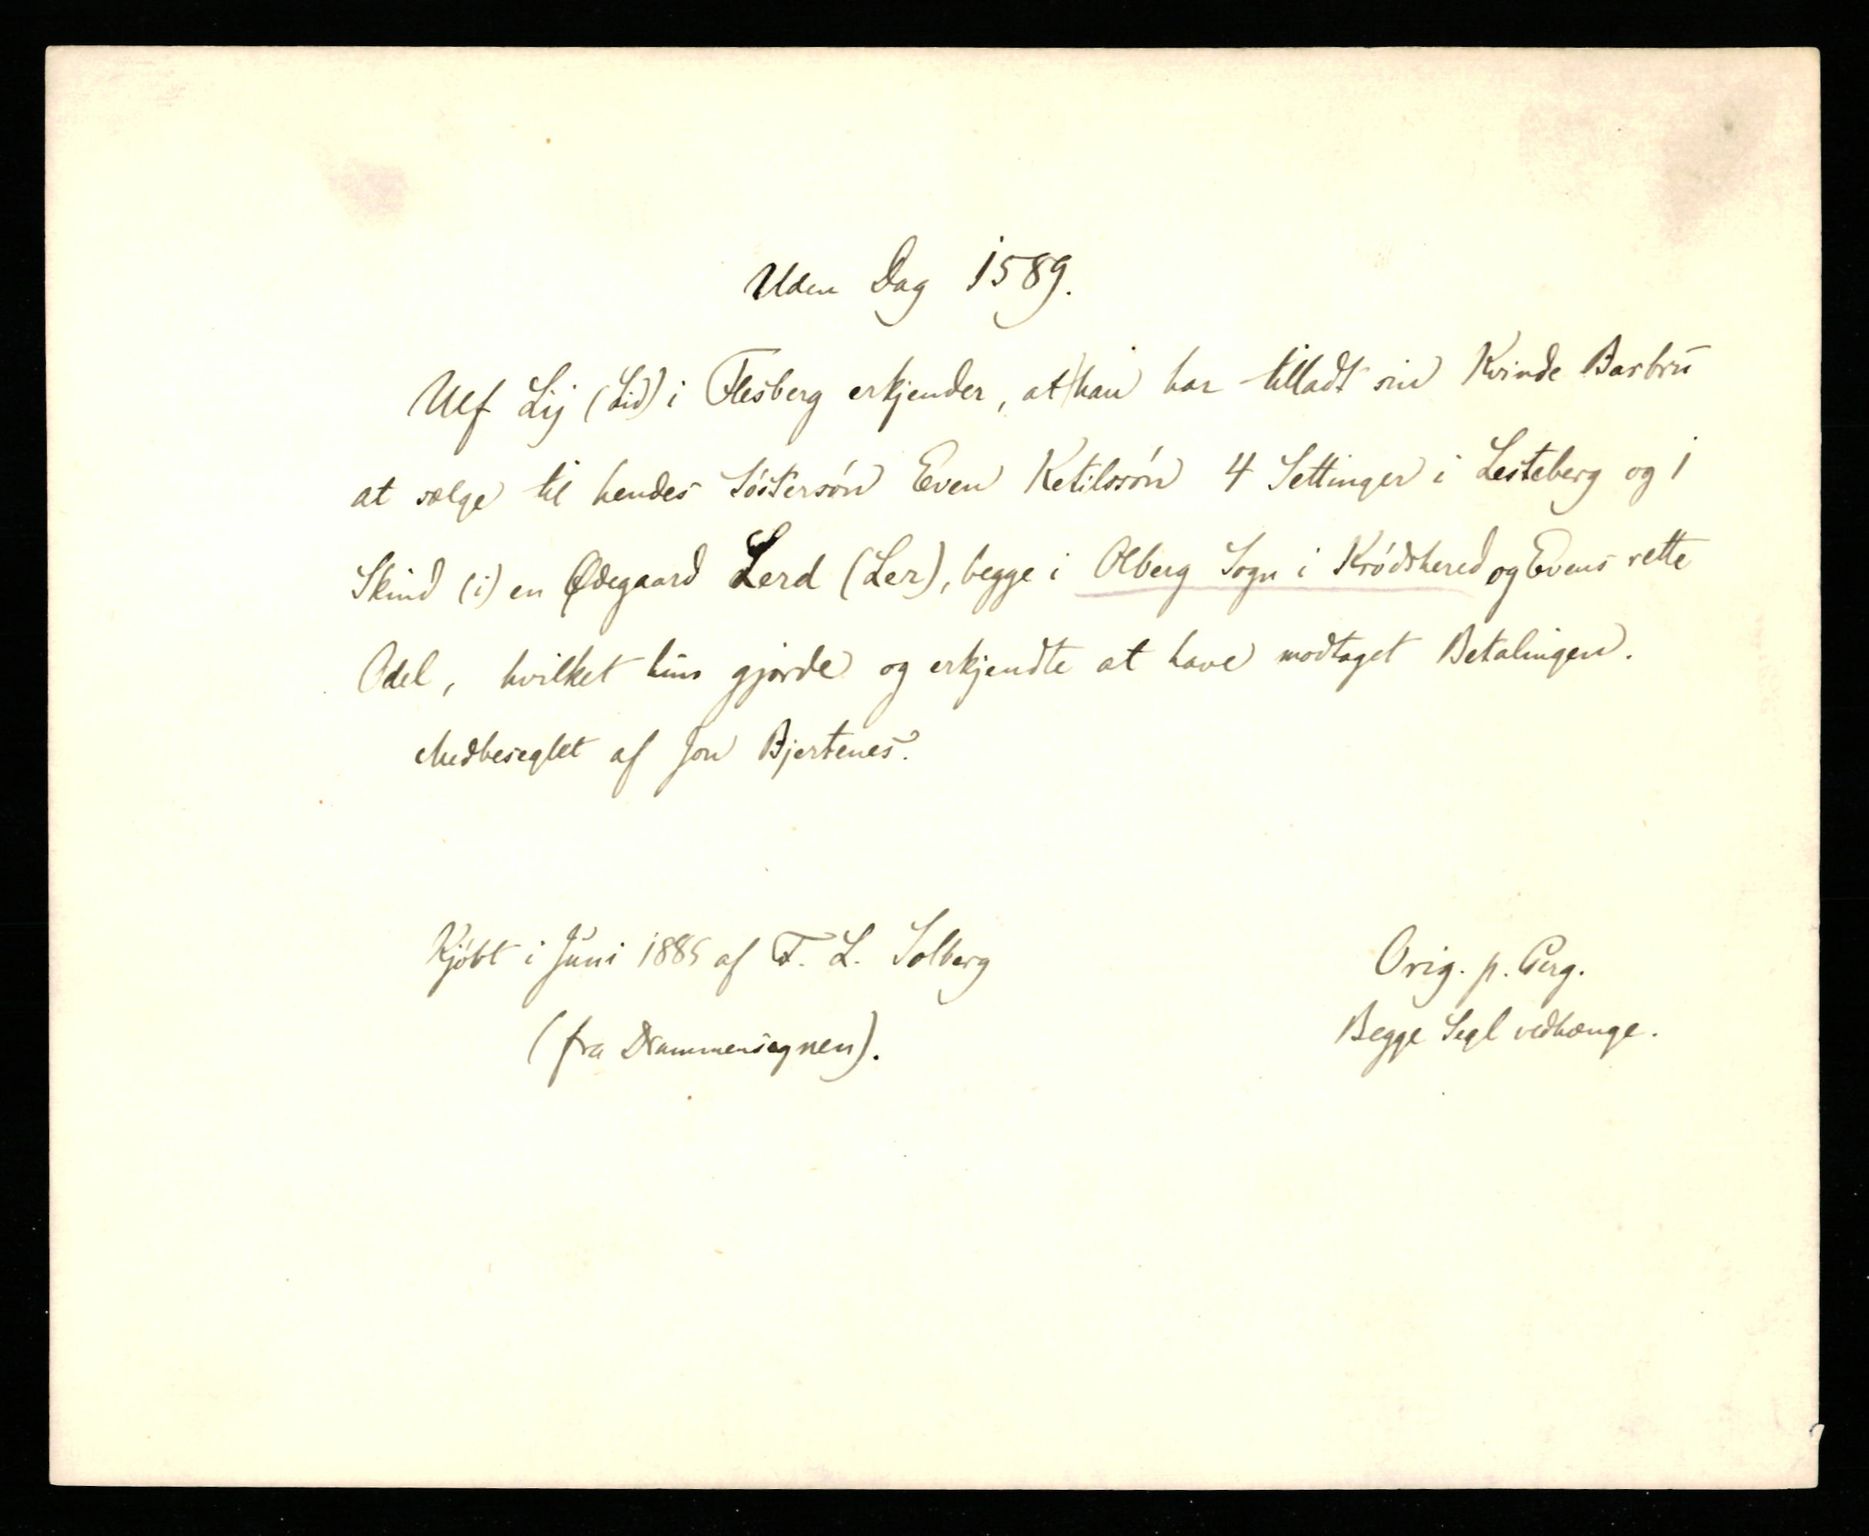 Uden Dag 1589.
Ulf Lij (Lid) i Flesberg erkjender, at han har tilladt sin Kvinde Barbru
at sælge til hendes Søstersøn Even Ketilssøn 4 Settinger i Lesteberg og 1
Skind (i) en Ødegaard Lerd (Ler), begge i Olberg Sogn i Krødshered og Evens rette
Odel, hvilket hun gjorde og erkjendte at have modtaget Betalingen.
Medbeseglet af Jon Bjertenes.
Kjøbt i Juni 1885 af F. L. Solberg
(fra Drammensegnen).
Orig. p. Perg.
Begge Segl vedhænge.